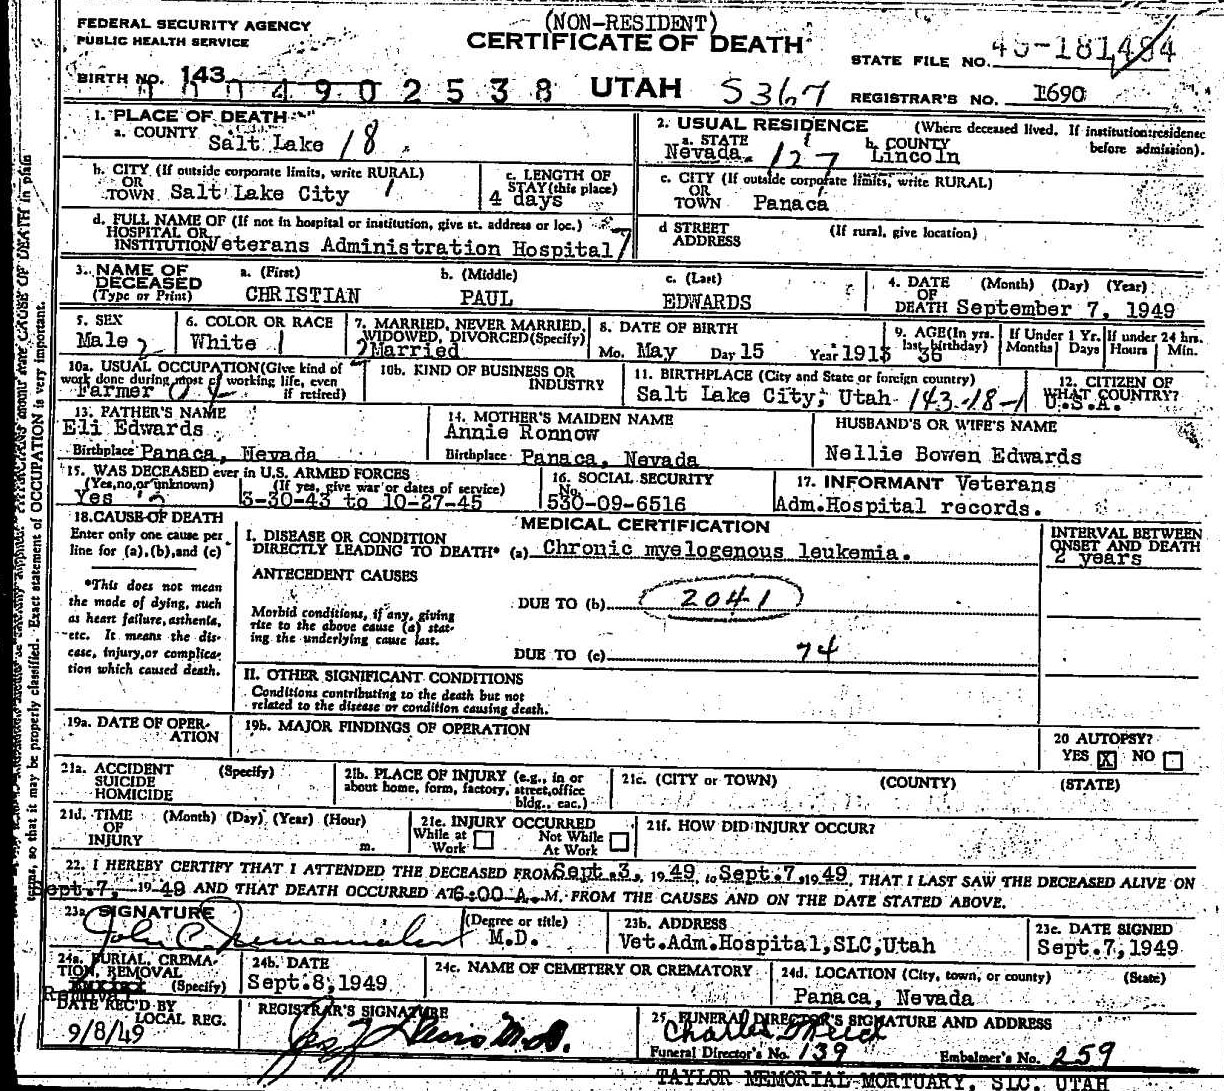 (NON-RESIDENT)
FEDERAL SECURITY AGENCY
PUBLIC HEALTH SERVICE
CERTIFICATE OF DEATH
STATE FILE NO. 49-181,484
BIRTH NO. 143
0004902538 UTAH S367
REGISTRAR'S NO. 1690
1. PLACE OF DEATH
a. COUNTY
Salt Lake 18
2. USUAL RESIDENCE (Where deceased lived. If institution:residence before admission).
a. STATE b. COUNTY
Nevada 127 Lincoln
b. CITY (If outside corporate limits, write RURAL)
OR
TOWN Salt Lake City 1
c. LENGTH OF
STAY (this place)
4 days
c. CITY (If outside corporate limits, write RURAL)
OR
TOWN Panaca
d. FULL NAME OF (If not in hospital or institution, give st. address or loc.)
HOSPITAL OR
INSTITUTION Veterans Administration Hospital 7
d STREET (If rural, give location)
ADDRESS
3. NAME OF DECEASED
(Type or Print)
a. (First) b. (Middle) c. (Last)
CHRISTIAN PAUL EDWARDS
4. DATE (Month) (Day) (Year)
OF
DEATH September 7, 1949
5. SEX
Male 2
6. COLOR OR RACE
White 1
7. MARRIED, NEVER MARRIED,
WIDOWED, DIVORCED (Specify)
2 Married
8. DATE OF BIRTH
Mo. May Day 15 Year 1913
9. AGE (In yrs. last birthday)
36
If Under 1 Yr. If under 24 hrs.
Months Days Hours Min.
10a. USUAL OCCUPATION (Give kind of
work done during most of working life, even
if retired)
Farmer
10b. KIND OF BUSINESS OR
INDUSTRY
11. BIRTHPLACE (City and State or foreign country)
Salt Lake City, Utah 143-18-1
12. CITIZEN OF
WHAT COUNTRY?
U.S.A.
13. FATHER'S NAME
Eli Edwards
Birthplace Panaca, Nevada
14. MOTHER'S MAIDEN NAME
Annie Ronnow
Birthplace Panaca, Nevada
HUSBAND'S OR WIFE'S NAME
Nellie Bowen Edwards
15. WAS DECEASED ever in U.S. ARMED FORCES
(Yes, no, or unknown) (If yes, give war or dates of service)
Yes 3-30-43 to 10-27-45
16. SOCIAL SECURITY
No.
530-09-6516
17. INFORMANT Veterans
Adm.Hospital records.
18. CAUSE OF DEATH
Enter only one cause per
line for (a), (b), and (c)
*This does not mean
the mode of dying, such
as heart failure, asthenia,
etc. It means the dis-
ease, injury, or complica-
tion which caused death.
MEDICAL CERTIFICATION
I. DISEASE OR CONDITION
DIRECTLY LEADING TO DEATH* (a) Chronic myelogenous leukemia.
ANTECEDENT CAUSES
Morbid conditions, if any, giving
rise to the above cause (a) stat-
ing the underlying cause last.
DUE TO (b) 2041
DUE TO (c) 74
INTERVAL BETWEEN
ONSET AND DEATH
2 years
II. OTHER SIGNIFICANT CONDITIONS
Conditions contributing to the death but not
related to the disease or condition causing death.
19a. DATE OF OPER-
ATION
19b. MAJOR FINDINGS OF OPERATION
20 AUTOPSY?
YES X NO
21a. ACCIDENT (Specify)
SUICIDE
HOMICIDE
21b. PLACE OF INJURY (e.g., in or
about home, form, factory, street, office
bldg., eac.)
21c. (CITY or TOWN) (COUNTY) (STATE)
21d. TIME (Month) (Day) (Year) (Hour)
OF
INJURY m.
21e. INJURY OCCURRED
While at Work Not While At Work
21f. HOW DID INJURY OCCUR?
22. I HEREBY CERTIFY THAT I ATTENDED THE DECEASED FROM Sept.3, 1949, to Sept.7, 1949, THAT I LAST SAW THE DECEASED ALIVE ON
Sept.7, 1949 AND THAT DEATH OCCURRED AT 6:00 A.M. FROM THE CAUSES AND ON THE DATE STATED ABOVE.
23a SIGNATURE (Degree or title)
John C. M.D.
23b. ADDRESS
Vet.Adm.Hospital,SLC,Utah
23c. DATE SIGNED
Sept.7,1949
24a. BURIAL, CREMA-
TION, REMOVAL
(Specify)
Removal
24b. DATE
Sept.8,1949
24c. NAME OF CEMETERY OR CREMATORY
24d. LOCATION (City, town, or county) (State)
Panaca, Nevada
DATE REC'D BY
LOCAL REG.
9/8/49
REGISTRAR'S SIGNATURE
M.D.
25. FUNERAL DIRECTOR'S SIGNATURE AND ADDRESS
Charles
Funeral Director's No. 139 Embalmer's No. 259
TAYLOR MEMORIAL MORTUARY, SLC, UTAH